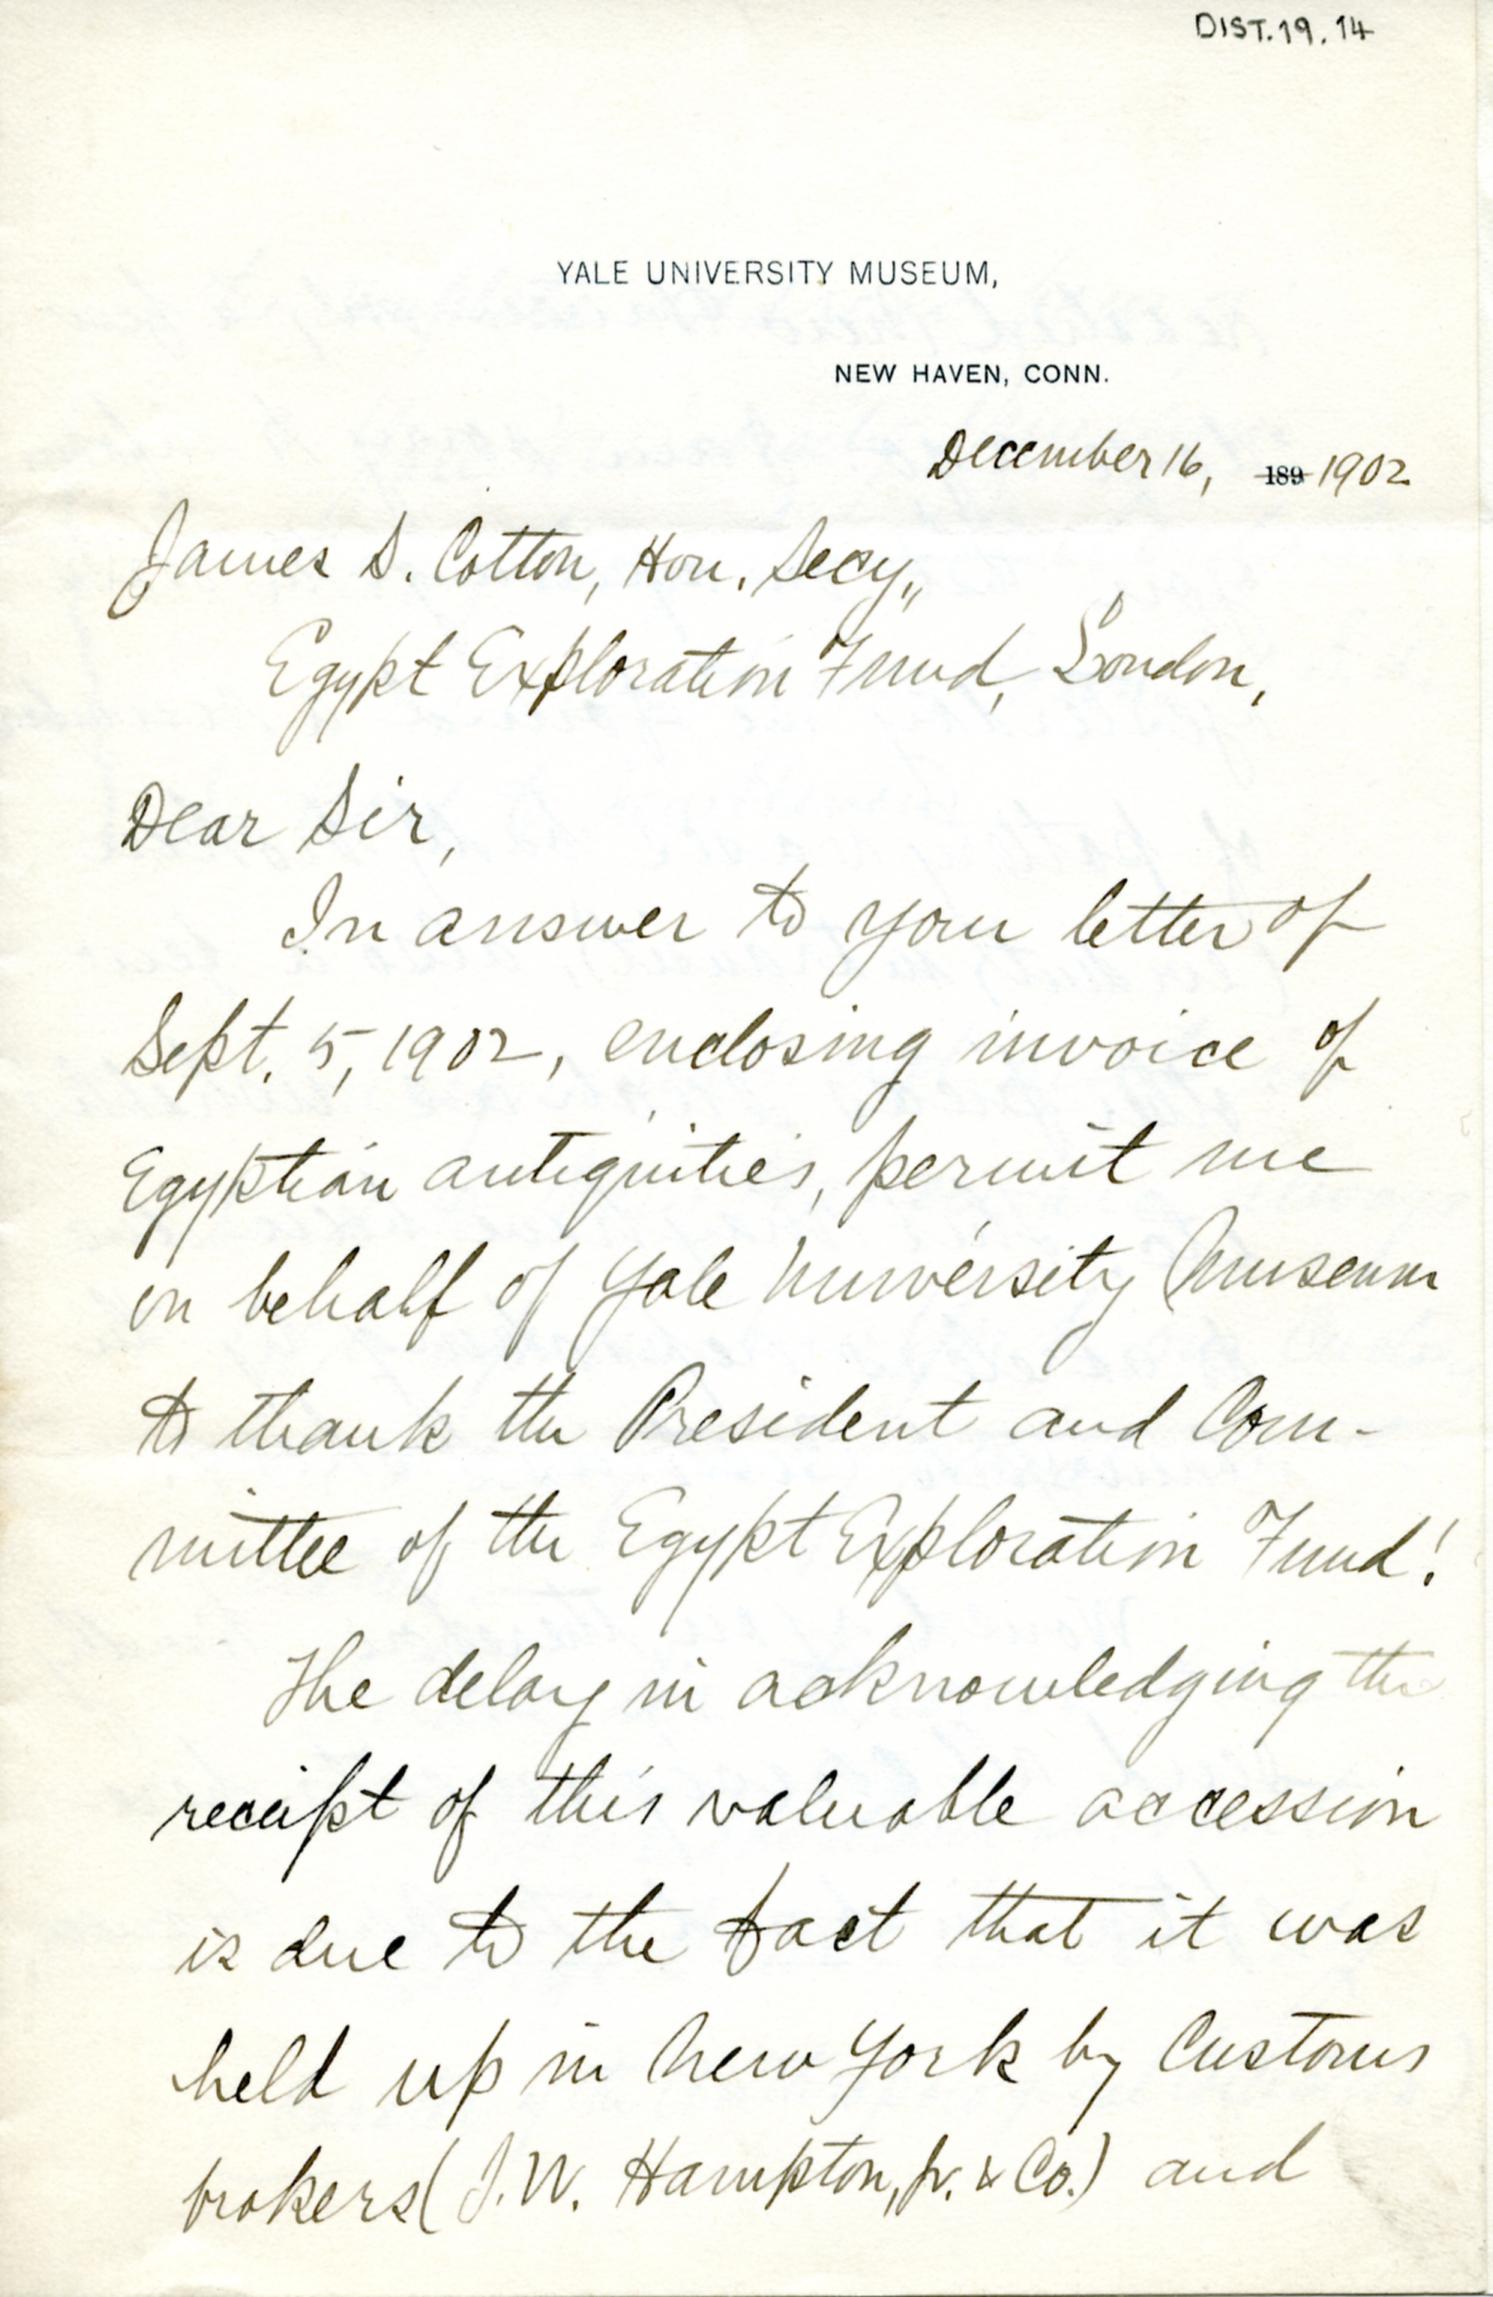 DIST.19.14
YALE UNIVERSITY MUSEUM,
NEW HAVEN, CONN.
December 16, 189 1902
James S. Cotton, Hon. Secy.,
Egypt Exploration Fund, London,
Dear Sir,
In answer to your letter of
Sept. 5, 1902, enclosing invoice of
Egyptian antiquities, permit me
on behalf of Yale University Museum
to thank the President and Com-
mittee of the Egypt Exploration Fund!
The delay in acknowledging the
receipt of this valuable accession
is due to the fact that it was
held up in New York by Customs
brokers (J. W. Hampton, Jr. & Co.) and